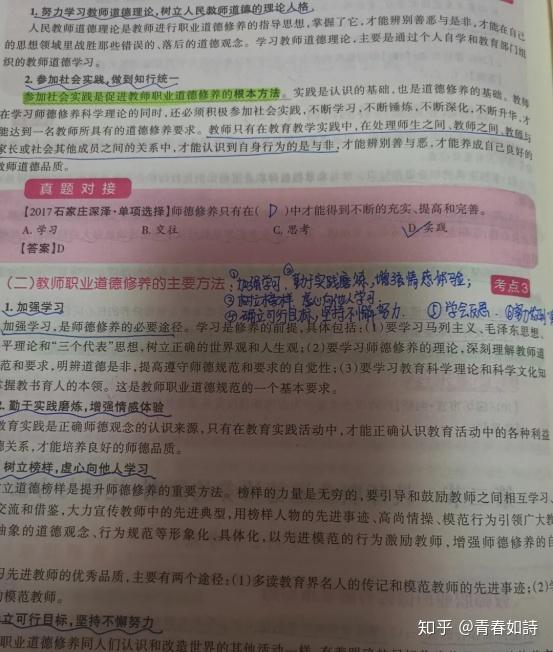 1. 努力学习教师道德理论，树立人民教师道德的理论人格
人民教师道德理论是教师进行职业道德修养的指导思想，掌握了它，才能辨别善恶与是非，才能在自己
的思想领域里战胜那些错误的、落后的道德观念。学习教师道德理论，主要是通过个人自学和教育部门组
织的教师道德学习。
2. 参加社会实践，做到知行统一
参加社会实践是促进教师职业道德修养的根本方法。实践是认识的基础，也是道德修养的基础。教师
在学习师德修养科学理论的同时，还必须积极参加社会实践，不断学习，不断锤炼，不断深化，不断升华，才
能达到一名教师所具有的道德修养要求。教师只有在教育教学实践中，在处理师生之间、教师之间、教师与
家长或社会其他成员之间的关系中，才能认识到自身行为的是与非，才能辨别善与恶，才能养成自己良好的
教师道德品质。
真题对接
【2017石家庄深泽·单项选择】师德修养只有在( D )中才能得到不断的充实、提高和完善。
A. 学习 B. 交往 C. 思考 D. 实践
【答案】D
(二)教师职业道德修养的主要方法：①加强学习 ②勤于实践磨炼，增强情感体验； 考点3
③树立榜样 虚心向他人学习
④确立可行目标，坚持不懈努力 ⑤学会反思
1. 加强学习
加强学习，是师德修养的必要途径。学习是修养的前提，具体包括：(1)要学习马列主义、毛泽东思想、
平理论和“三个代表”思想，树立正确的世界观和人生观；(2)要学习师德修养的理论，深刻理解教师道
范和要求，明辨道德是非，提高遵守师德规范和要求的自觉性；(3)要学习教育科学理论和科学文化知
掌握教书育人的本领。这是教师职业道德规范的一个基本要求。
2. 勤于实践磨炼，增强情感体验
教育实践是正确师德观念的认识来源，只有在教育实践活动中，才能正确认识教育活动中的各种利益
德关系，才能培养良好的师德品质。
树立榜样，虚心向他人学习
立道德榜样是提升师德修养的重要方法。榜样的力量是无穷的，要引导和鼓励教师之间相互学习、
交流和借鉴，大力宣传教师中的先进典型，用榜样人物的先进事迹、高尚情操、模范行为引领广大教
抽象的道德观念、行为规范等形象化、具体化，以先进模范的行为激励教师，增强师德修养的自
习先进教师的优秀品质，主要有两个途径：(1)多读教育界名人的传记和模范教师的先进事迹；(2)学
的模范教师。
立可行目标，坚持不懈努力
职业道德修养同人们认识和改造世界的其他活动一样
知乎 @青春如詩